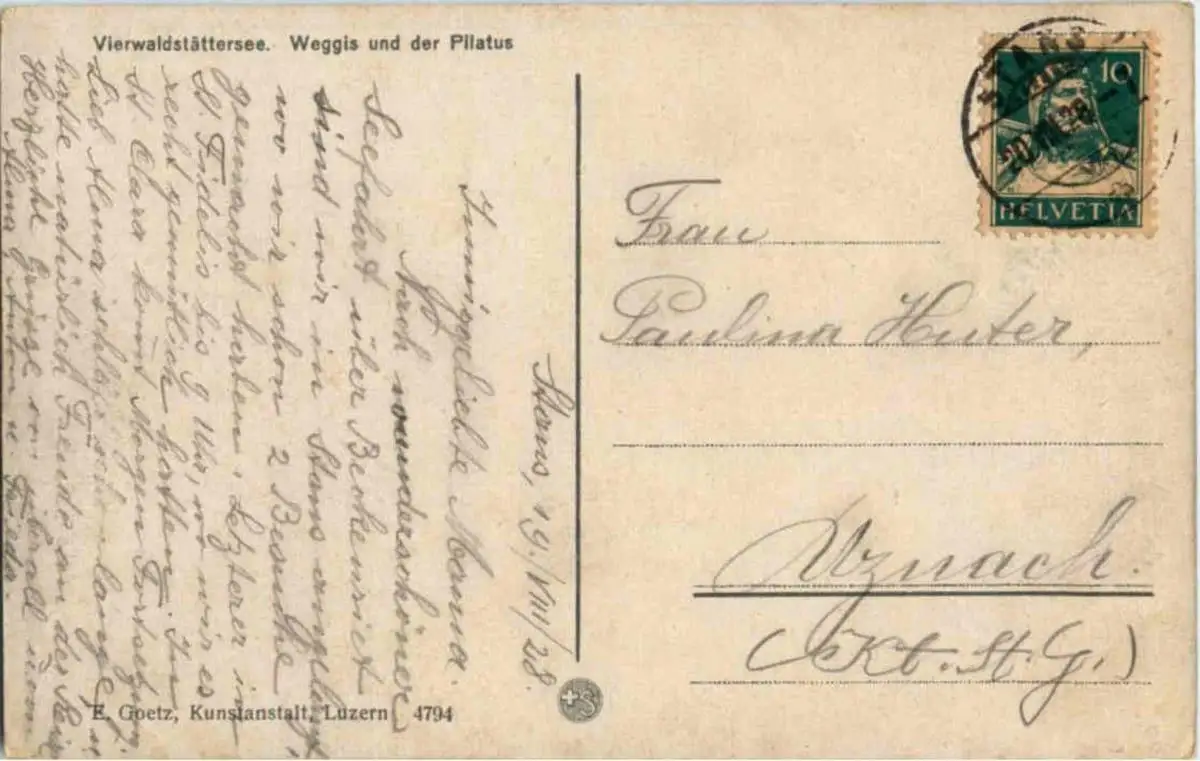 Vierwaldstättersee. Weggis und der Pilatus
Stans, 19./VIII/28.
Innigseliebte Mamma.
Nach wunderschöner
Seefahrt über Beckenried
sind wir in Stans angelangt,
wo wir schon 2 Besuche
gemacht herben. Letzterer in
St. Fidelis bis 9 Uhr, wo wir es
recht gemütlich hatten. In
St. Clara komt Morgen
Lieb Alma
hatte natürlich Freude an der
Herzliche Grüsse von überall von
Alma Anton u Frieda.
E. Goetz, Kunstanstalt, Luzern 4794
STANS
20.VIII.28
10
HELVETIA
Frau
Paulina Huter,
Uznach.
(Kt. St. G.)